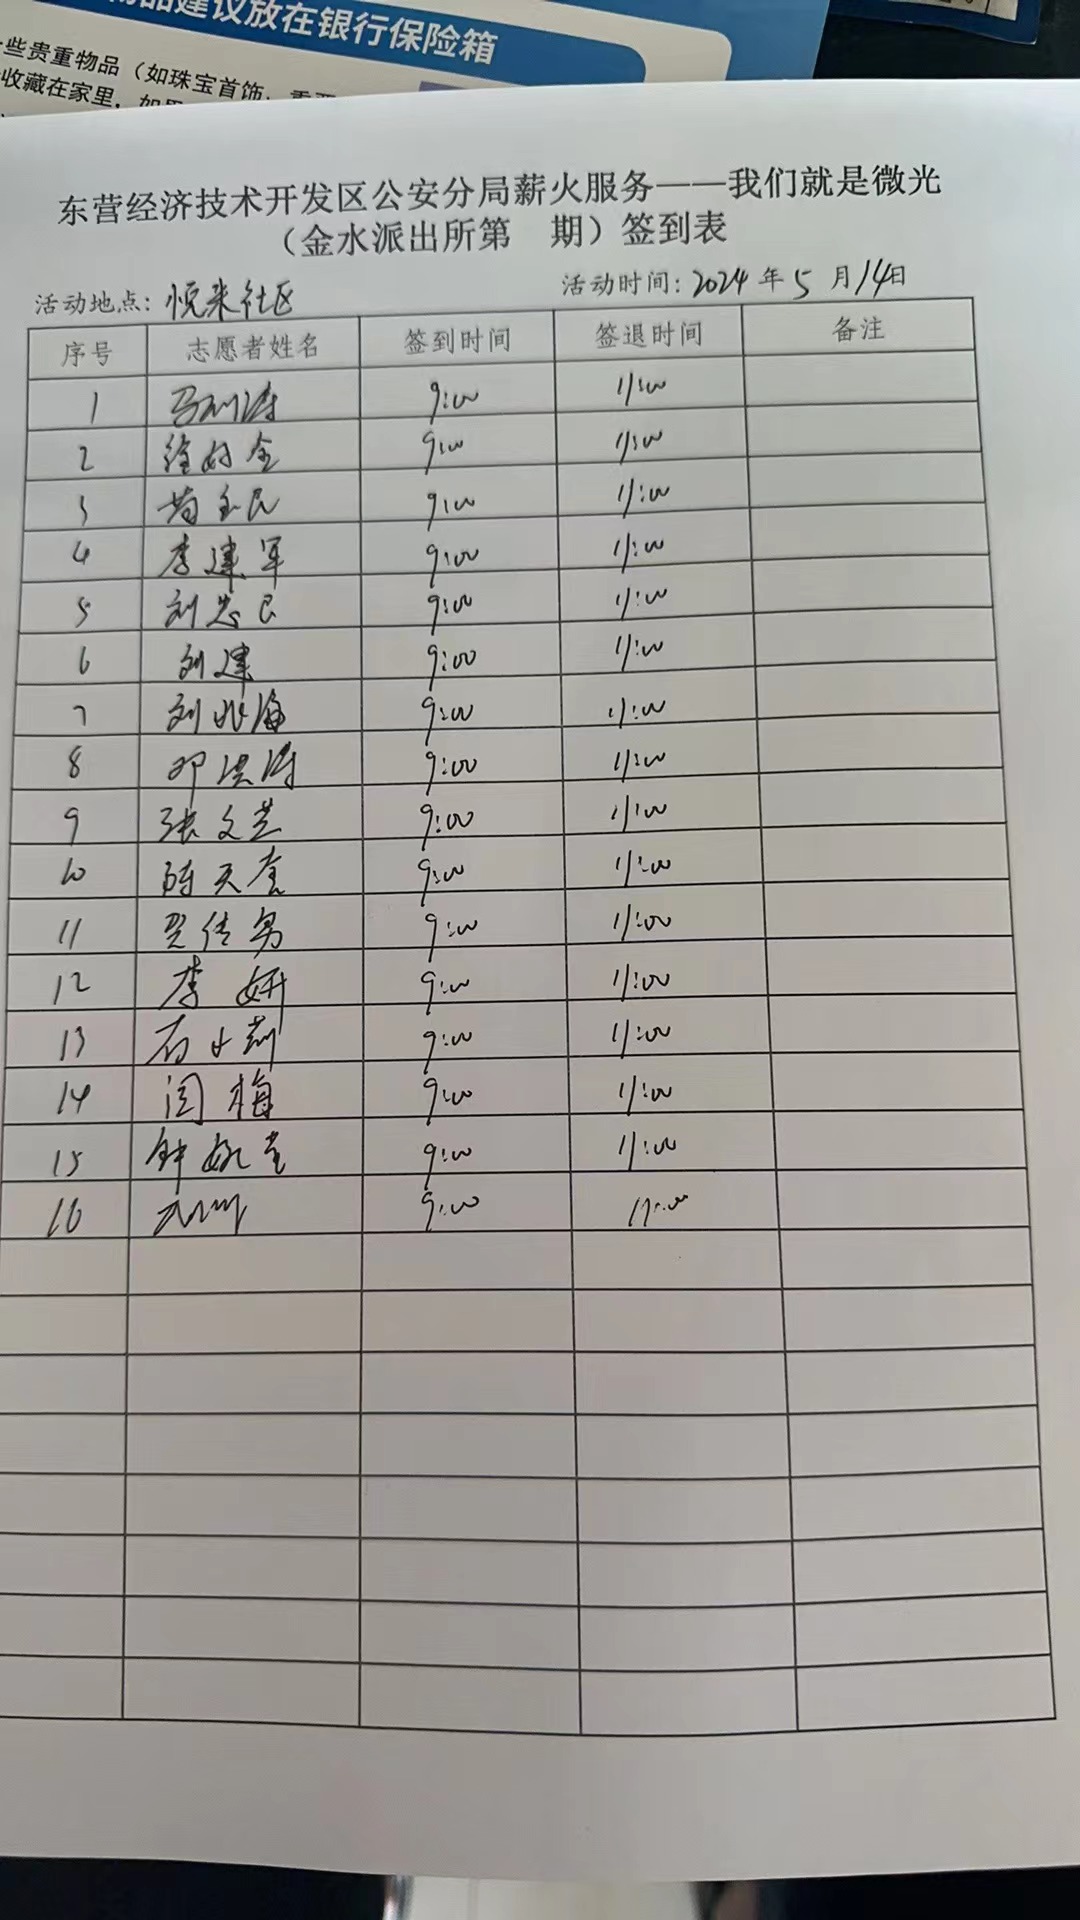 物品建议放在银行保险箱
一些贵重物品（如珠宝首饰、重要
收藏在家里，如果
东营经济技术开发区公安分局薪火服务——我们就是微光
（金水派出所第 期）签到表
活动地点：悦来社区 活动时间：2024年5月14日
序号 志愿者姓名 签到时间 签退时间 备注
1 9:00 11:00
2 9:00 11:00
3 9:00 11:00
4 李建军 9:00 11:00
5 刘忠民 9:00 11:00
6 刘建 9:00 11:00
7 刘兆海 9:00 11:00
8 邓洪涛 9:00 11:00
9 张文芝 9:00 11:00
10 陈天奎 9:00 11:00
11 贾传勇 9:00 11:00
12 李妍 9:00 11:00
13 石小莉 9:00 11:00
14 闫梅 9:00 11:00
15 9:00 11:00
16 9:00 11:00